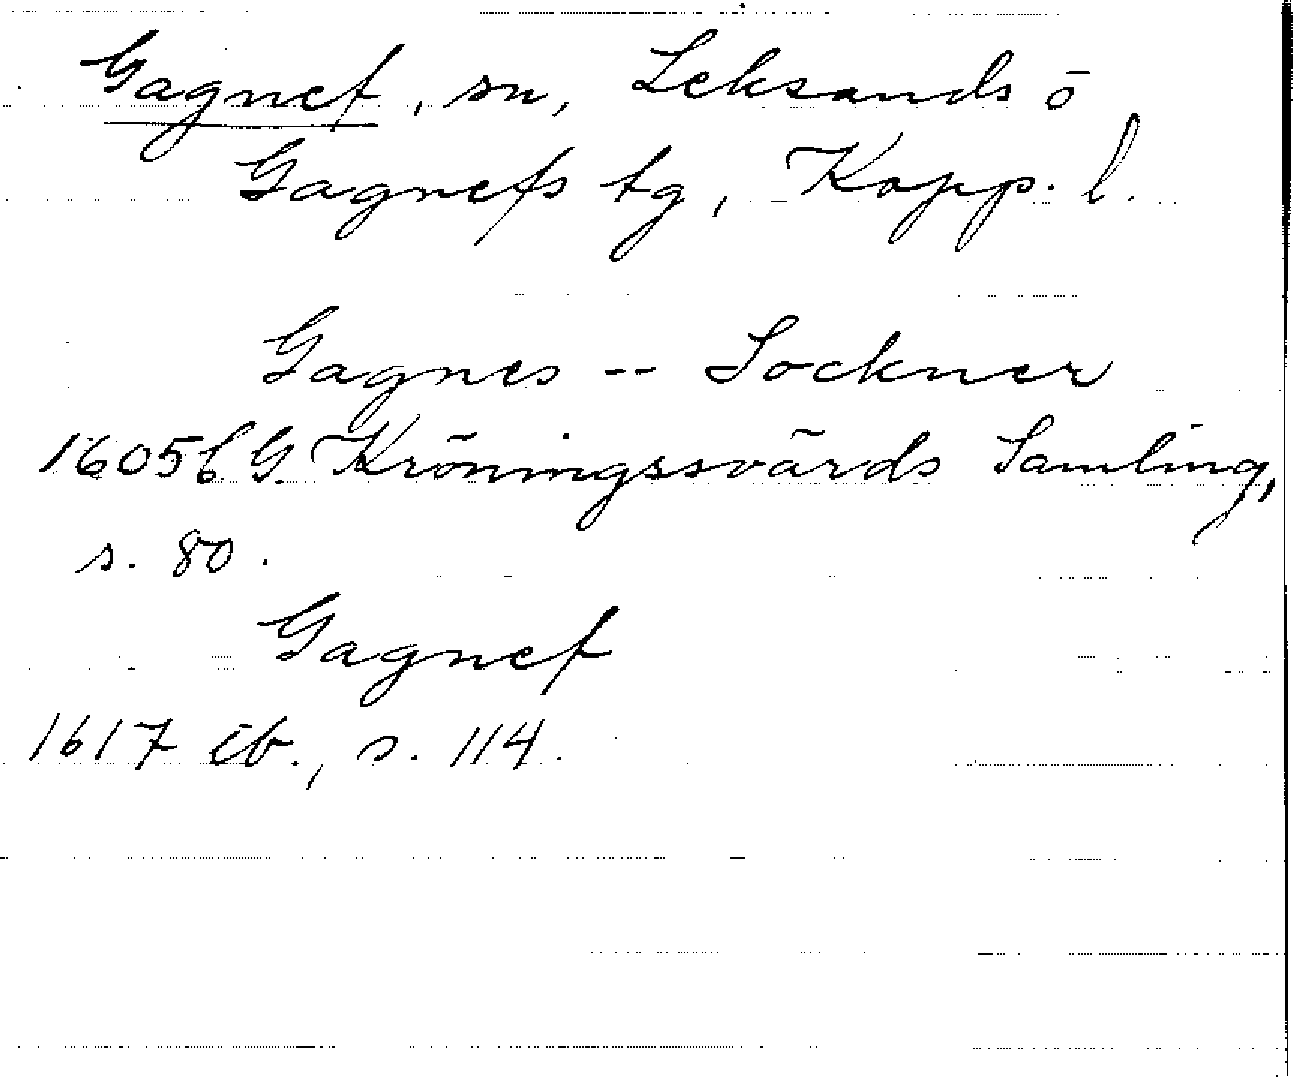 Gagnef, sn, Leksands ö
Gagnefs tg, Kopp. l.
Gagnes -- Sockner
1605 C.G. Kröningssvärds Samling,
s. 80.
Gagnef
1617 ib., s. 114.